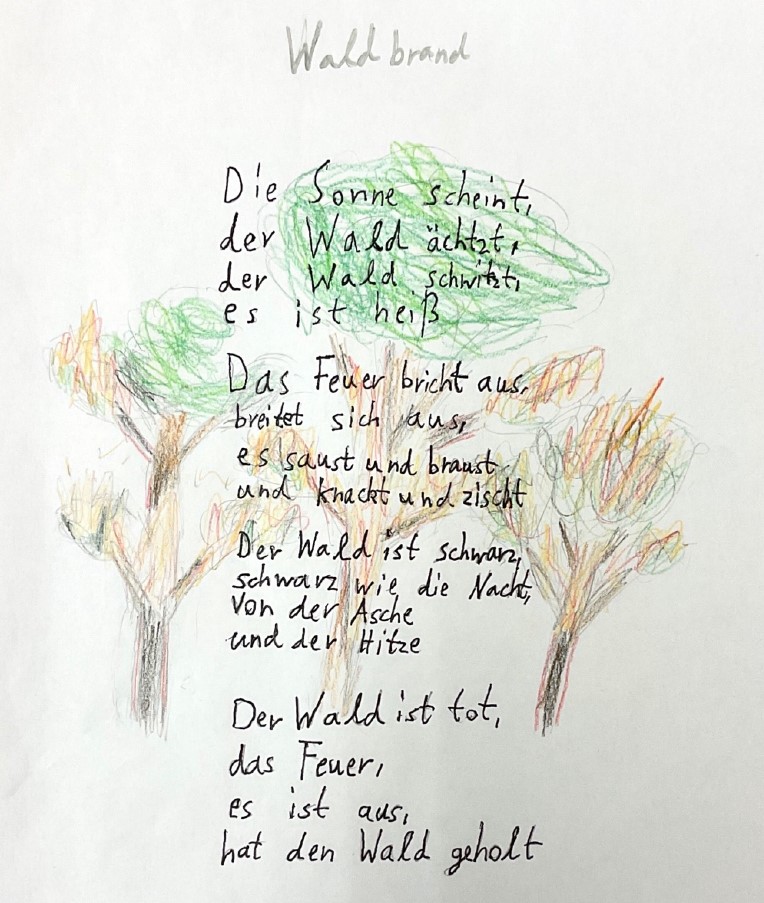 Waldbrand
Die Sonne scheint,
der Wald ächtzt,
der Wald schwitzt,
es ist heiß
Das Feuer bricht aus,
breitet sich aus,
es saust und braust
und knackt und zischt
Der Wald ist schwarz,
schwarz wie die Nacht,
von der Asche
und der Hitze
Der Wald ist tot,
das Feuer,
es ist aus,
hat den Wald geholt